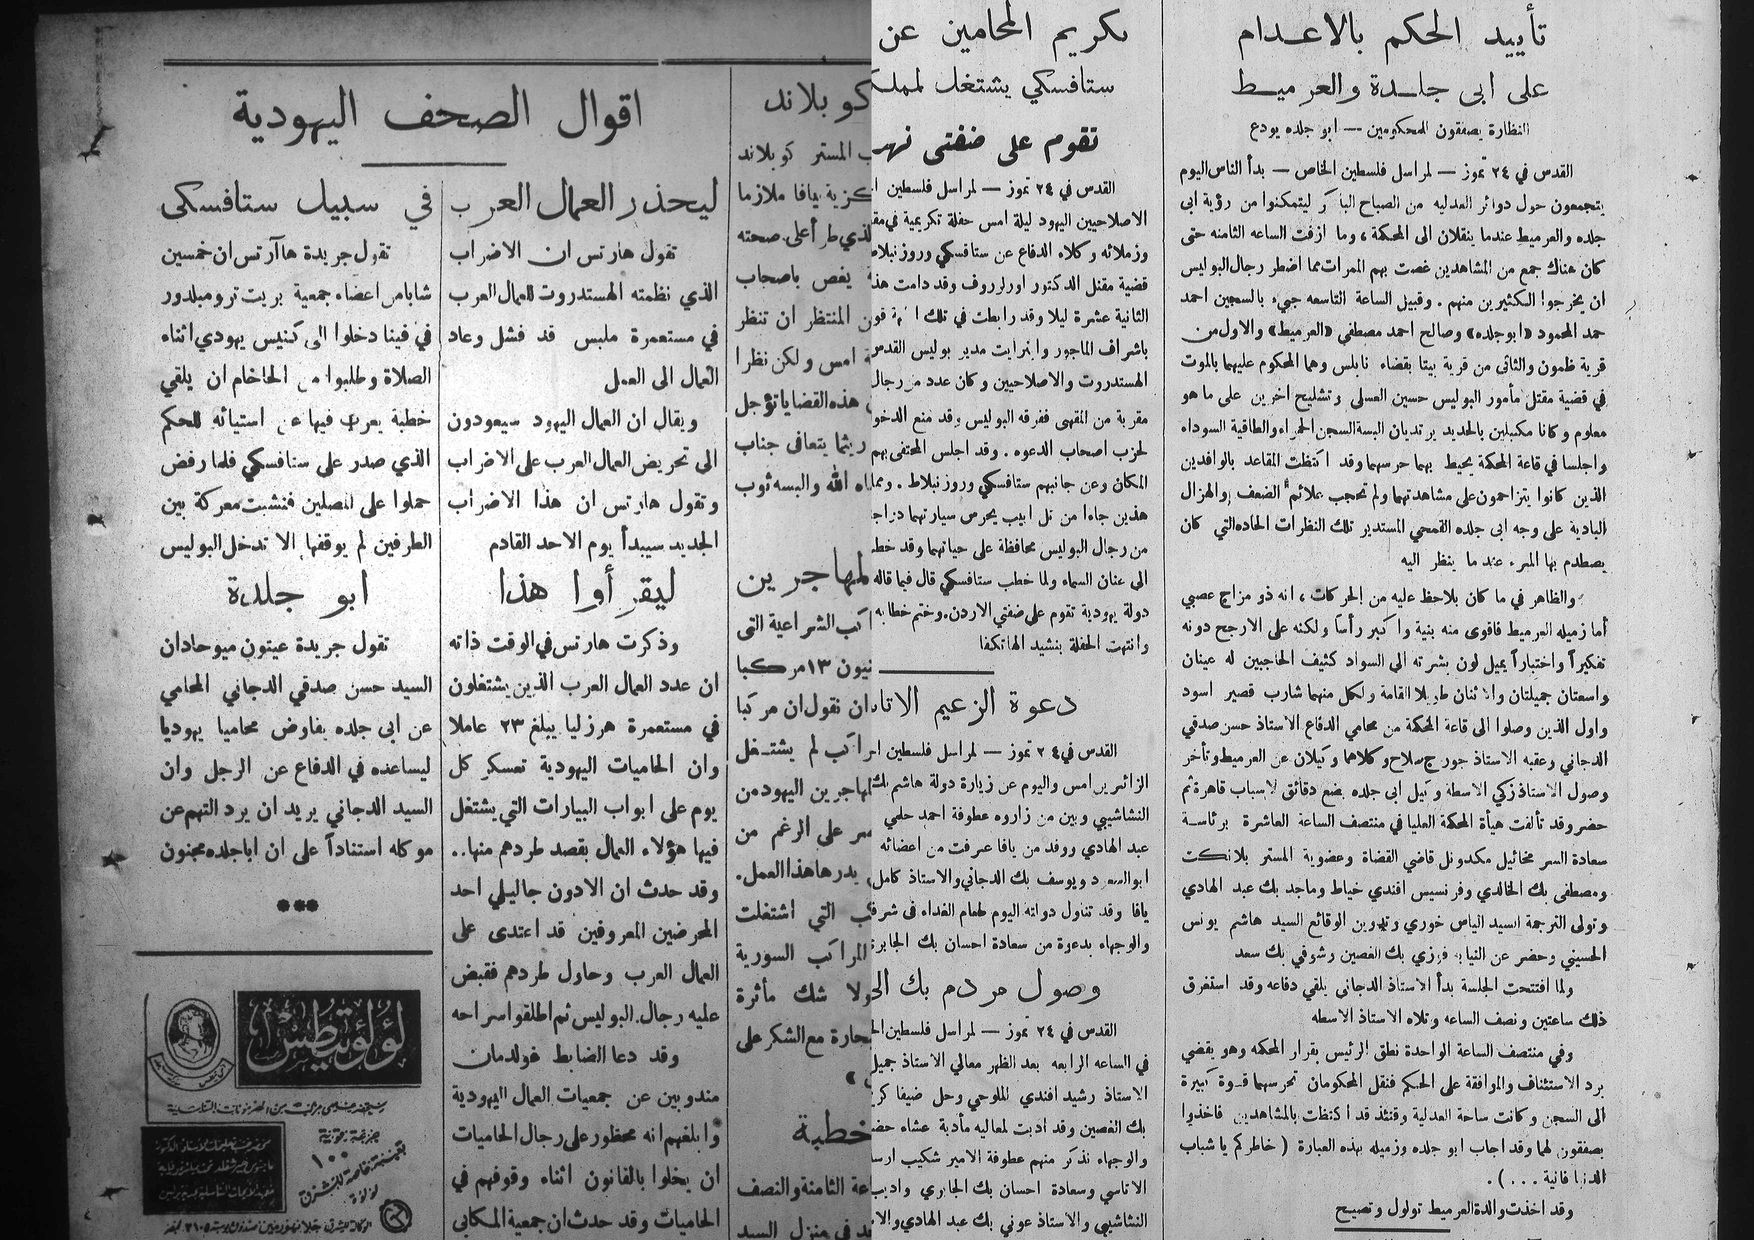 تأييد الحكم بالاعدام
على ابى جلدة والعرميط
النظارة يصفقون للمحكومين — ابو جلده يودع
القدس في ٢٤ تموز — لمراسل فلسطين الخاص — بدأ الناس اليوم
يتجمعون حول دوائر العدليه من الصباح الباكر ليتمكنوا من رؤية ابى
جلده والعرميط عندما ينقلان الى المحكمة ، وما ازفت الساعه الثامنه حتى
كان هناك جمع من المشاهدين غصت بهم الممرات مما اضطر رجال البوليس
ان يخرجوا الكثيرين منهم . وقبيل الساعة التاسعه جيء بالسجين احمد
حمد المحمود «ابو جلده» وصالح احمد مصطفي «العرميط» والاول من
قرية طمون والثاني من قرية بيتا بقضاء نابلس وهما المحكوم عليهما بالموت
في قضية مقتل مأمور البوليس حسين العسلي وتشليح اخرين على ما هو
معلوم وكانا مكبلين بالحديد يرتديان البسة السجن الحمراء والطاقية السوداء
واجلسا في قاعة المحكمة يحيط بهما حرسهما وقد اكتظت المقاعد بالوافدين
الذين كانوا يتزاحمون على مشاهدتهما ولم تحجب علائم الضعف والهزال
البادية على وجه ابى جلده القمحي المستدير تلك النظرات الحاده التي كان
يصطدم بها المرء عند ما ينظر اليه
والظاهر في ما كان يلاحظ عليه من الحركات ، انه ذو مزاج عصبي
أما زميله العرميط فاقوى منه بنية واكبر رأسا ولكنه على الارجح دونه
تفكيراً واختباراً يميل لون بشرته الى السواد كثيف الحاجبين له عينان
واسعتان جميلتان والاثنان طويلا القامة ولكل منهما شارب قصير اسود
واول الذين وصلوا الى قاعة المحكمة من محامي الدفاع الاستاذ حسن صدقي
الدجاني وعقبه الاستاذ جورج صلاح وكلاهما وكيلان عن العرميط وتأخر
وصول الاستاذ زكي الاسطة وكيل ابى جلده بضع دقائق لاسباب قاهرة ثم
حضر وقد تألفت هيأة المحكمة العليا في منتصف الساعة العاشرة برئاسة
سعادة السر مخائيل مكدونل قاضي القضاة وعضوية المستر بلانكت
ومصطفى بك الخالدي وفرنسيس افندي خياط وماجد بك عبد الهادي
وتولى الترجمة السيد الياس خوري وتدوين الوقائع السيد هاشم يونس
الحسيني وحضر عن النيابه فوزي بك الغصين وشوقي بك سعد
ولما افتتحت الجلسة بدأ الاستاذ الدجاني يلقي دفاعه وقد استغرق
ذلك ساعتين ونصف الساعه وتلاه الاستاذ الاسطه
وفي منتصف الساعة الواحدة نطق الرئيس بقرار المحكمه وهو يقضي
برد الاستئناف والموافقة على الحكم فنقل المحكومان تحرسهما قوة كبيرة
الى السجن وكانت ساحة العدلية وقتئذ قد اكتظت بالمشاهدين فاخذوا
يصفقون لهما وقد اجاب ابو جلده وزميله بهذه العبارة ( خاطركم يا شباب
الدنيا فانية ... ) .
وقد اخذت والدة العرميط تولول وتصيح
تكريم المحامين عن
ستافسكي يشتغل لمملكـ
تقوم على ضفتى نهر
القدس في ٢٤ تموز — لمراسل فلسطين ا
الاصلاحيين اليهود ليلة امس حفلة تكريمية في مقـ
وزملائه وكلاء الدفاع عن ستافسكي وروزنبلاط
قضية مقتل الدكتور اورلوروف وقد دامت هذ
الثانية عشرة ليلا وقد رابطت في تلك قو
باشراف الماجور مدير بوليس القدس
الهستدروت والاصلاحيين وكان عدد من رجال
مقربة من المقهى ففرقه البوليس وقد منع الدخو
لحزب اصحاب الدعوه . وقد اجلس المحتفى بهم
المكان وعن جانبهم ستافسكي وروزنبلاط . ومما
هذين جاءا من تل ابيب يحرس سيارتهما دراجـ
من رجال البوليس محافظة على حياتهما وقد خطـ
الى عنان السماء ولما خطب ستافسكي قال فيما قاله
دولة يهودية تقوم على ضفتي الاردن . وختم خطابه
وانتهت الحفلة بنشيد الهاتكفا
دعوة الزعيم الاتاسـ
القدس في ٢٤ تموز — لمراسل فلسطين ا
الزائرين امس واليوم عن زيارة دولة هاشم بك
النشاشيبي وبين من زاروه عطوفة احمد حلمي
عبد الهادي ووفد من يافا عرفت من اعضائه
ابو السعود ويوسف بك الدجاني والاستاذ كامل
يافا وقد تناول دولته اليوم طعام الغداء في شرفـ
والوجهاء بدعوة من سعادة احسان بك الجابري
وصول مردم بك الخـ
القدس في ٢٤ تموز — لمراسل فلسطين الخـ
في الساعه الرابعه بعد الظهر معالي الاستاذ جميل
الاستاذ رشيد افندي الملوحي وحل ضيفا كريـ
بك الغصين وقد ادبت لمعاليه مأدبة عشاء حضـ
والوجهاء نذكر منهم عطوفة الامير شكيب ارسـ
الاتاسي وسعادة احسان بك الجابري واديب
النشاشيبي والاستاذ عوني بك عبد الهادي والا
كوبلاند
ب المستر كوبلاند
كزية يافا ملازما
لذي طرأ على صحته
ة يغص باصحاب
ن المنتظر ان تنظر
ة امس ولكن نظرا
هذه القضايا تؤجل
ريثما يتعافى جناب
اه الله والبسه ثوب
لمهاجرين
اكب الشراعية التى
نيون ١٣ مركبا
ان نقول ان مركبا
راكب لم يشتغل
لمهاجرين اليهود من
صر على الرغم من
يدرها هذا العمل .
كب التي اشتغلت
المراكب السورية
ولا شك مأثرة
حارة مع الشكر على
خطبة
عة الثامنة والنصف
قد في منزل السيد
اقوال الصحف اليهودية
ليحذر العمال العرب
تقول هارتس ان الاضراب
الذي نظمته الهستدروت للعمال العرب
في مستعمرة ملبس قد فشل وعاد
العمال الى العمل
ويقال ان العمال اليهود سيعودون
الى تحريض العمال العرب على الاضراب
وتقول هارتس ان هذا الاضراب
الجديد سيبدأ يوم الاحد القادم
ليقرأوا هذا
وذكرت هارتس في الوقت ذاته
ان عدد العمال العرب الذين يشتغلون
في مستعمرة هرزليا يبلغ ٢٣ عاملا
وان الحاميات اليهودية تعسكر كل
يوم على ابواب البيارات التي يشتغل
فيها هؤلاء العمال بقصد طردهم منها..
وقد حدث ان الادون جاليلي احد
المحرضين المعروفين قد اعتدى على
العمال العرب وحاول طردهم فقبض
عليه رجال البوليس ثم اطلقوا سراحه
وقد دعا الضابط غولدمان
مندوبين عن جمعيات العمال اليهودية
وابلغهم انه محظور على رجال الحاميات
ان يخلوا بالقانون اثناء وقوفهم في
الحاميات وقد حدث ان جمعية المكابى
في سبيل ستافسكى
تقول جريدة هاآرتس ان خمسين
شابا من اعضاء جمعية بريت ترومبلدور
في فينا دخلوا الى كنيس يهودي اثناء
الصلاة وطلبوا من الحاخام ان يلقي
خطبة يعرب فيها عن استيائه للحكم
الذي صدر على ستافسكي فلما رفض
حملوا على المصلين فنشبت معركة بين
الطرفين لم يوقفها الا تدخل البوليس
ابو جلدة
تقول جريدة عيتون ميوحادان
السيد حسن صدقي الدجاني المحامي
عن ابى جلده يفاوض محاميا يهوديا
ليساعده في الدفاع عن الرجل وان
السيد الدجاني يريد ان يرد التهم عن
موكله استناداً على ان ابا جلده مجنون
***
لؤلؤتيطس
١٠٠
لؤلؤة